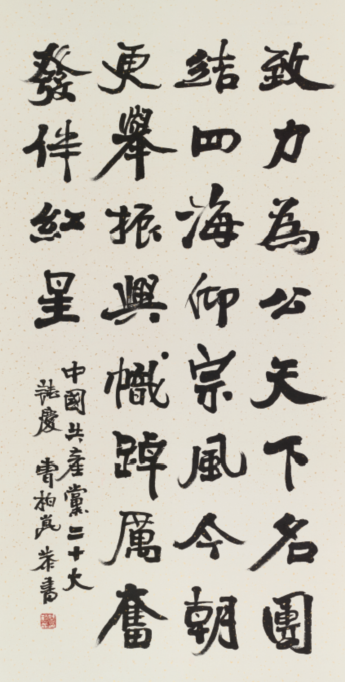 致力為公天下名團
結四海仰宗風今朝
更舉振興幟踔厲奮
發伴紅星
中國共產黨二十大
誌慶 曹柏恭書